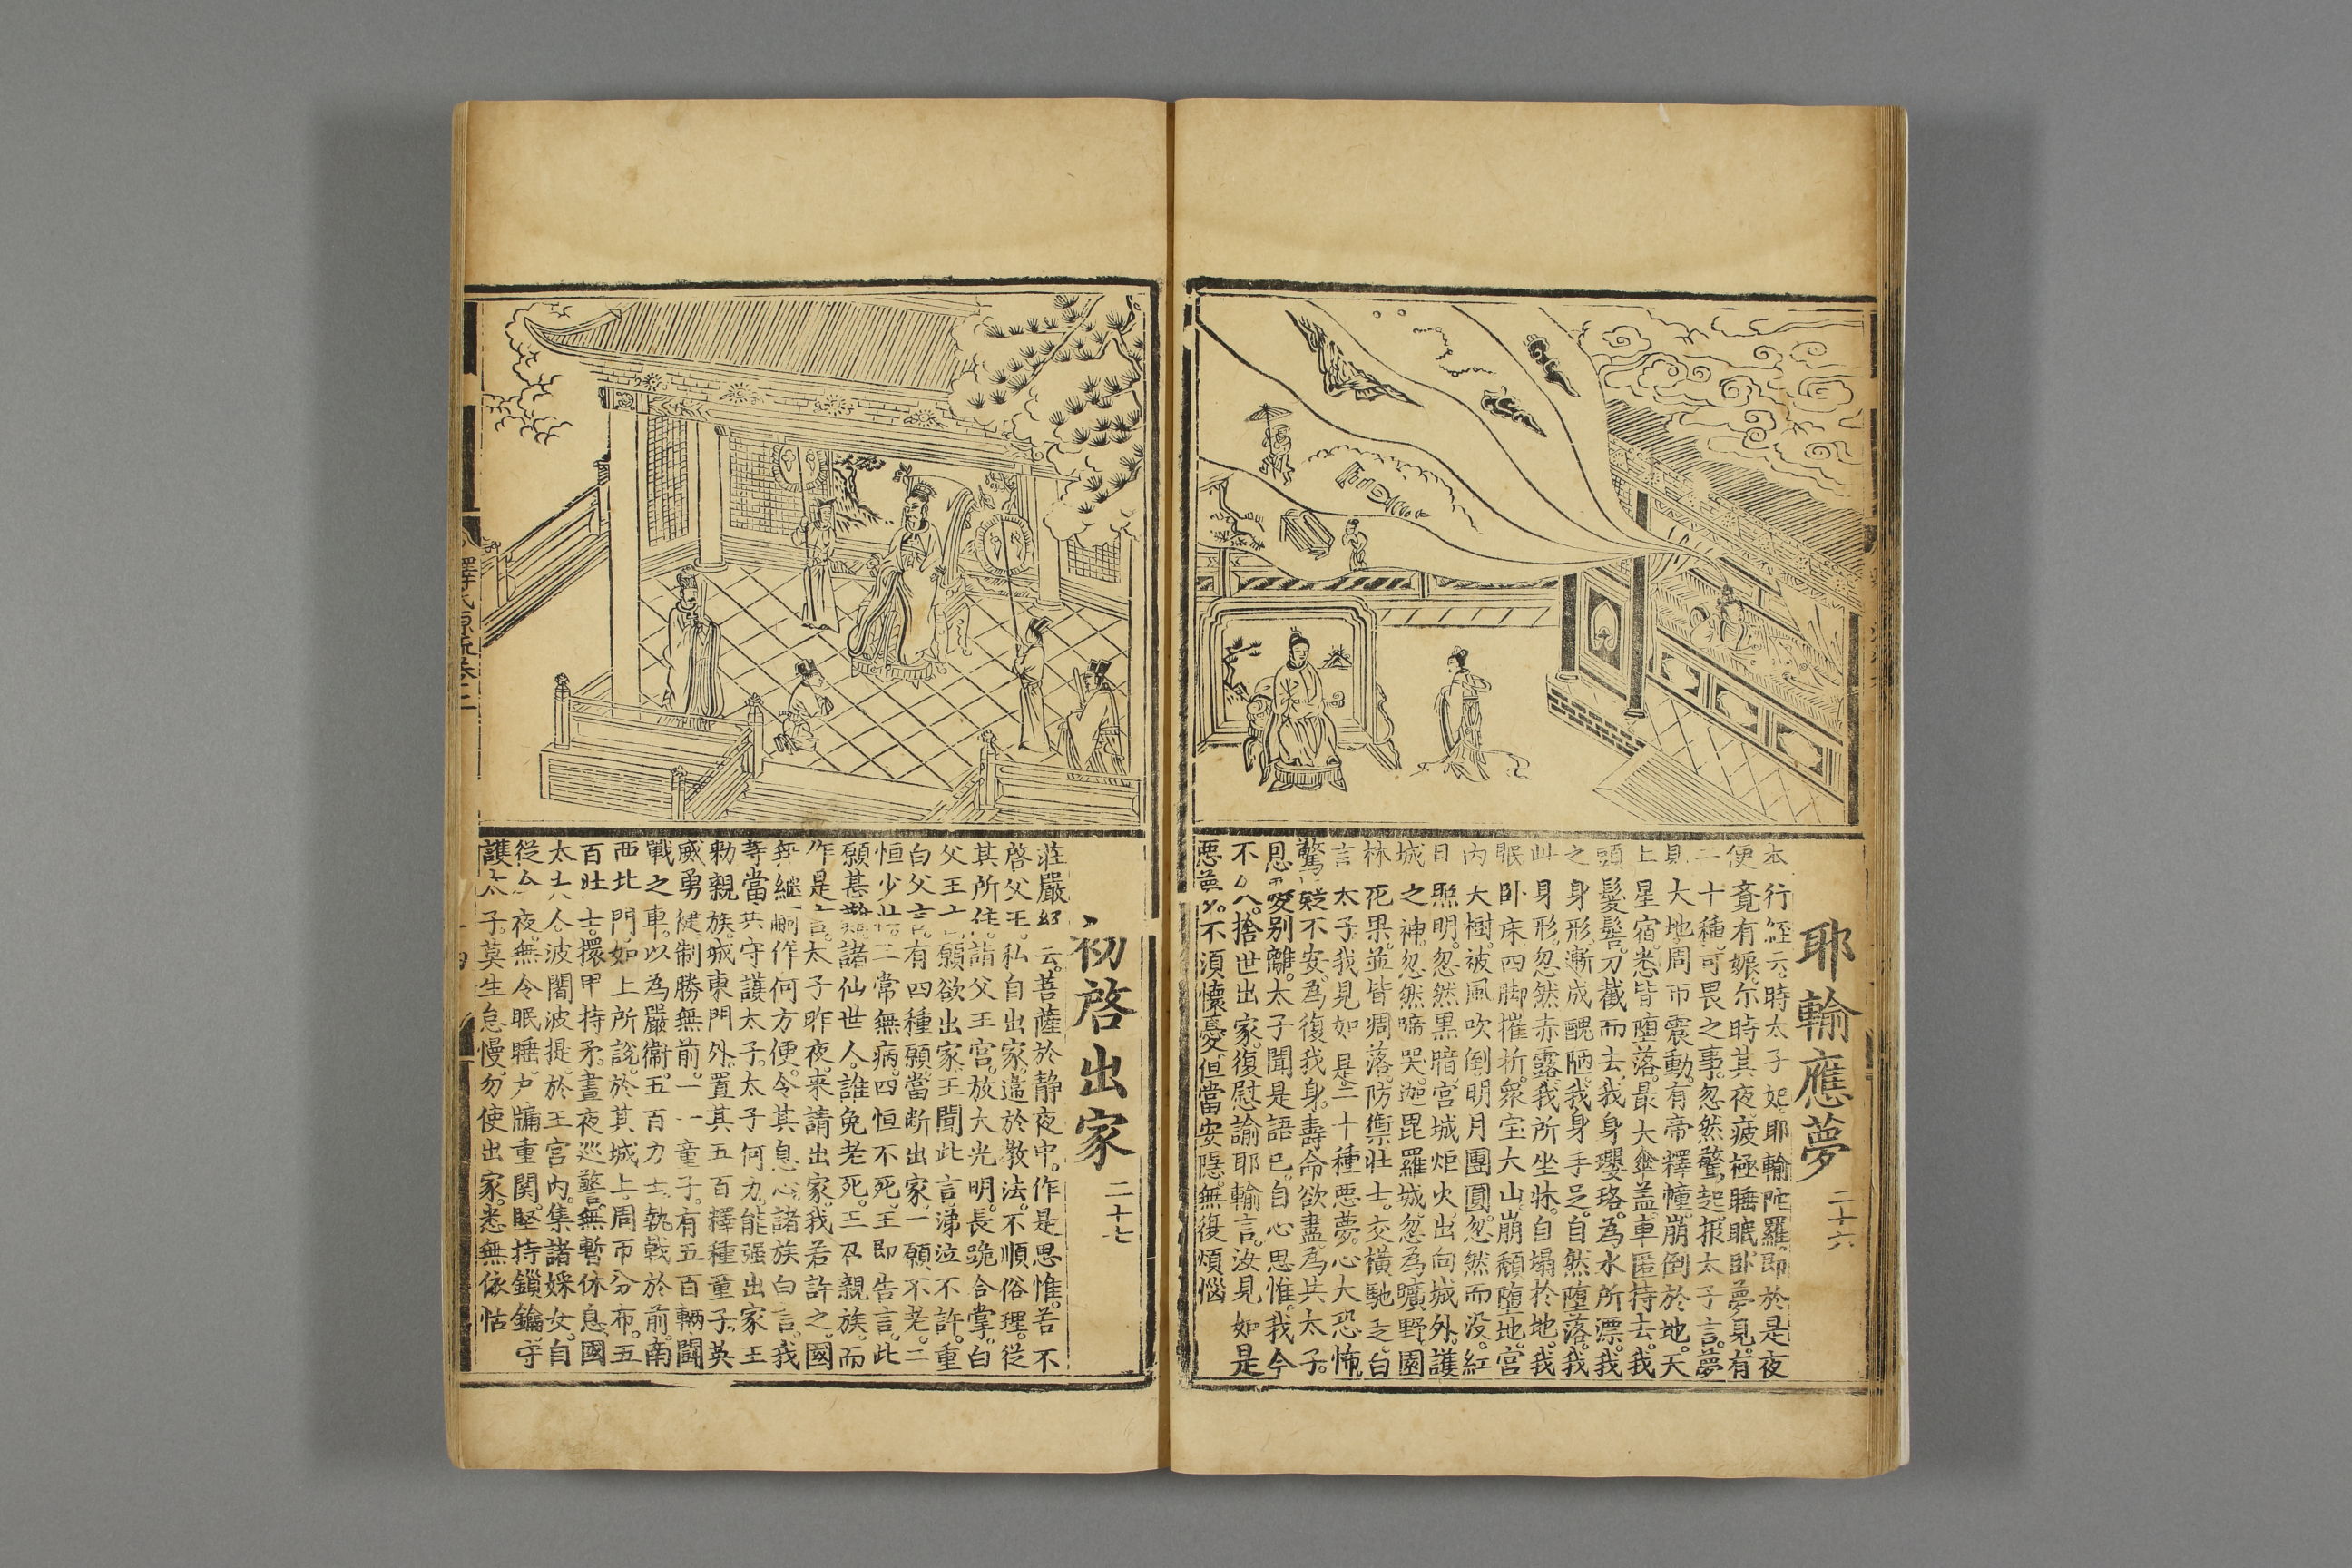 耶輸應夢 二十六
本行經云。時太子妃耶輸陀羅。即於是夜
便竟有娠。尓時其夜疲極睡眠卧夢見。有
二十種可畏之事。忽然驚起。報太子言。夢
見大地周帀震動。有帝釋幢崩倒於地。天
上星宿悉皆墮落。最大傘盖。車匿持去。我
頭髮髻刀截而去。我身瓔珞。為水所漂。我
之身形。漸成醜陋。我身手足。自然墮落。我
此身形。忽然赤露。我所坐牀。自塌於地。我
眠卧床。四脚摧折。衆宝大山。崩頹墮地。宮
內大樹。被風吹倒。明月團圓。忽然而没。紅
日照明。忽然黑暗。宮城炬火。出向城外。護
城之神。忽然啼哭。迦毘羅城。忽為曠野。園
林花果。並皆凋落。防禦壯士。交橫馳走。白
言太子。我見如是。二十種悪夢。心大恐怖。
驚疑不安。為復我身。壽命欲盡。為共太子。
恩愛別離。太子聞是語已。自心思惟。我今
不久。捨世出家。復慰諭耶輸言。汝見如是
悪夢。不須懷憂。但當安隱。無復煩惱
初啓出家 二十七
莊嚴經云。菩薩於静夜中。作是思惟。若不
啓父王。私自出家。違於教法。不順俗理。從
其所住。詣父王宮。放大光明。長跪合掌。白
父王言。願欲出家。王聞此言。涕泣不許。重
白父言。有四種願。當断出家。一願不老。二
恒少壮。三常無病。四恒不死。王即告言。此
願甚難。諸仙世人。誰免老死。王召親族。而
作是言。太子昨夜。来請出家。我若許之。國
無継嗣。作何方便。令其息心。諸族白言。我
等當共守護太子。太子何力。能强出家。王
勑親族。城東門外。置其五百釋種童子。英
威勇健。制勝無前。一一童子。有五百輛鬪
戰之車。以為嚴衞。五百力士。執戟於前。南
西北門。如上所說。於其城上。周帀分布。五
百壯士。擐甲持矛。晝夜巡警。無暫休息。國
太夫人。波闍波提。於王宮內。集諸婇女。自
從今夜。無令眠睡。户牖重関。堅持鎻鑰。守
護太子。莫生怠慢。勿使出家。悉無依怙
釋氏源流卷上